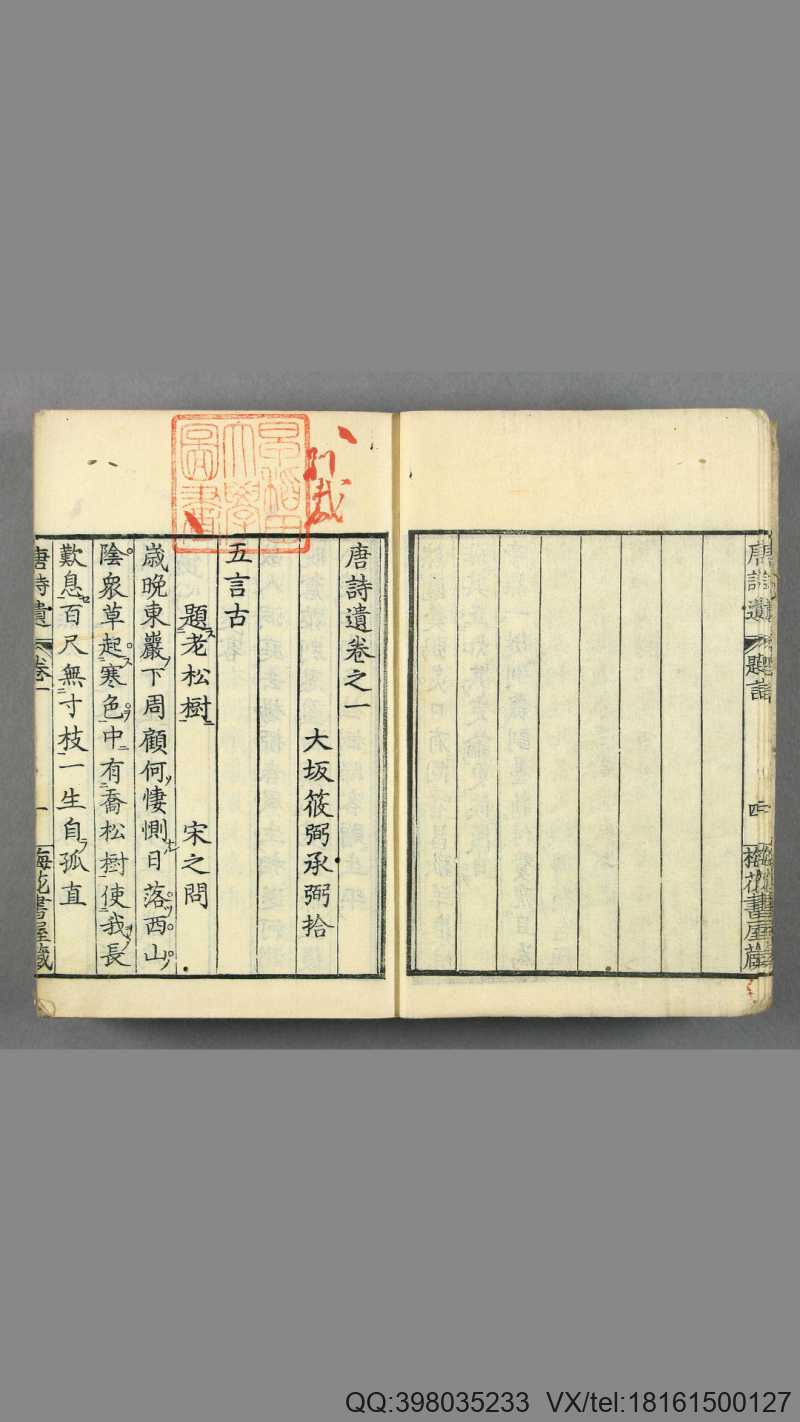 唐詩遺 題語 四 梅花書屋藏
早稻田大學圖書
唐詩遺卷之一
大坂筱弼承弼拾
五言古
題老松樹 宋之問
歳晩東巖下周顧何悽惻日落西山
陰衆草起寒色中有喬松樹使我長
歎息百尺無寸枝一生自孤直
唐詩遺 卷一 一 梅花書屋藏
QQ:398035233 VX/tel:18161500127